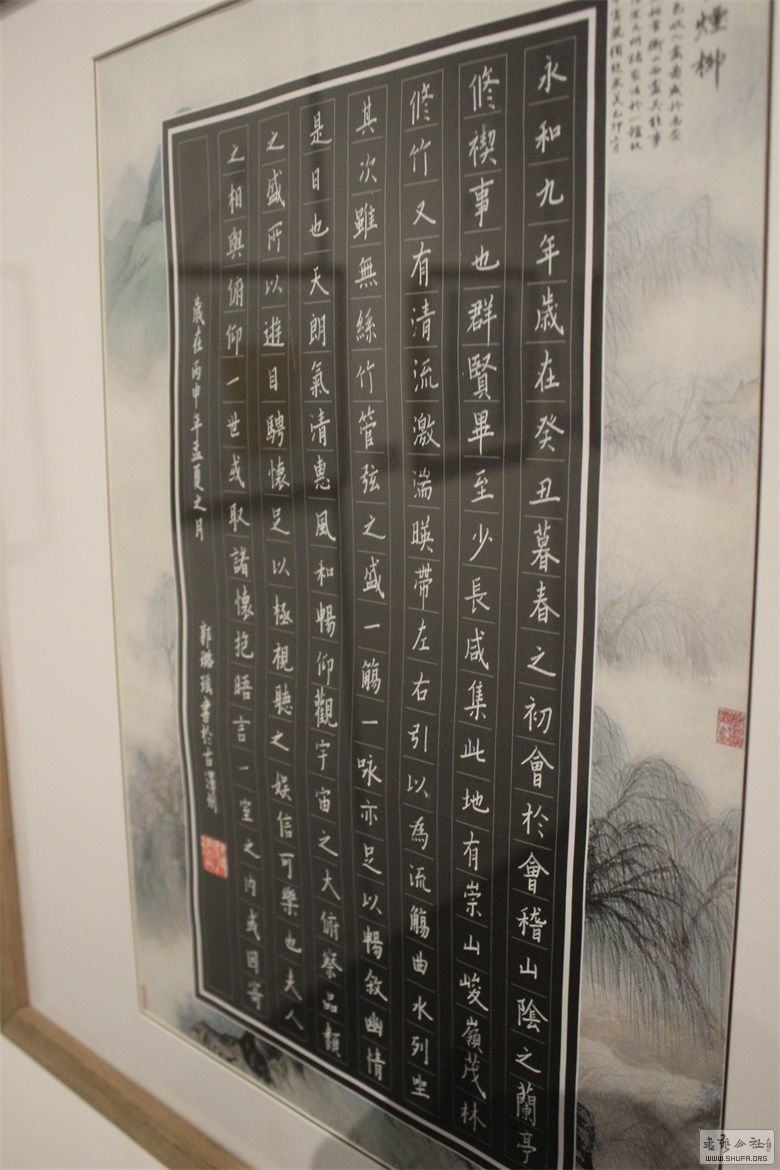 煙柳
永和九年歲在癸丑暮春之初會於會稽山陰之蘭亭
修禊事也群賢畢至少長咸集此地有崇山峻嶺茂林
修竹又有清流激湍暎帶左右引以為流觴曲水列坐
其次雖無絲竹管弦之盛一觴一詠亦足以暢敘幽情
是日也天朗氣清惠風和暢仰觀宇宙之大俯察品類
之盛所以遊目騁懷足以極視聽之娛信可樂也夫人
之相與俯仰一世或取諸懷抱晤言一室之內或因寄
歲在丙申年孟夏之月 郭璐書於古澤州
WWW.SHUFA.ORG